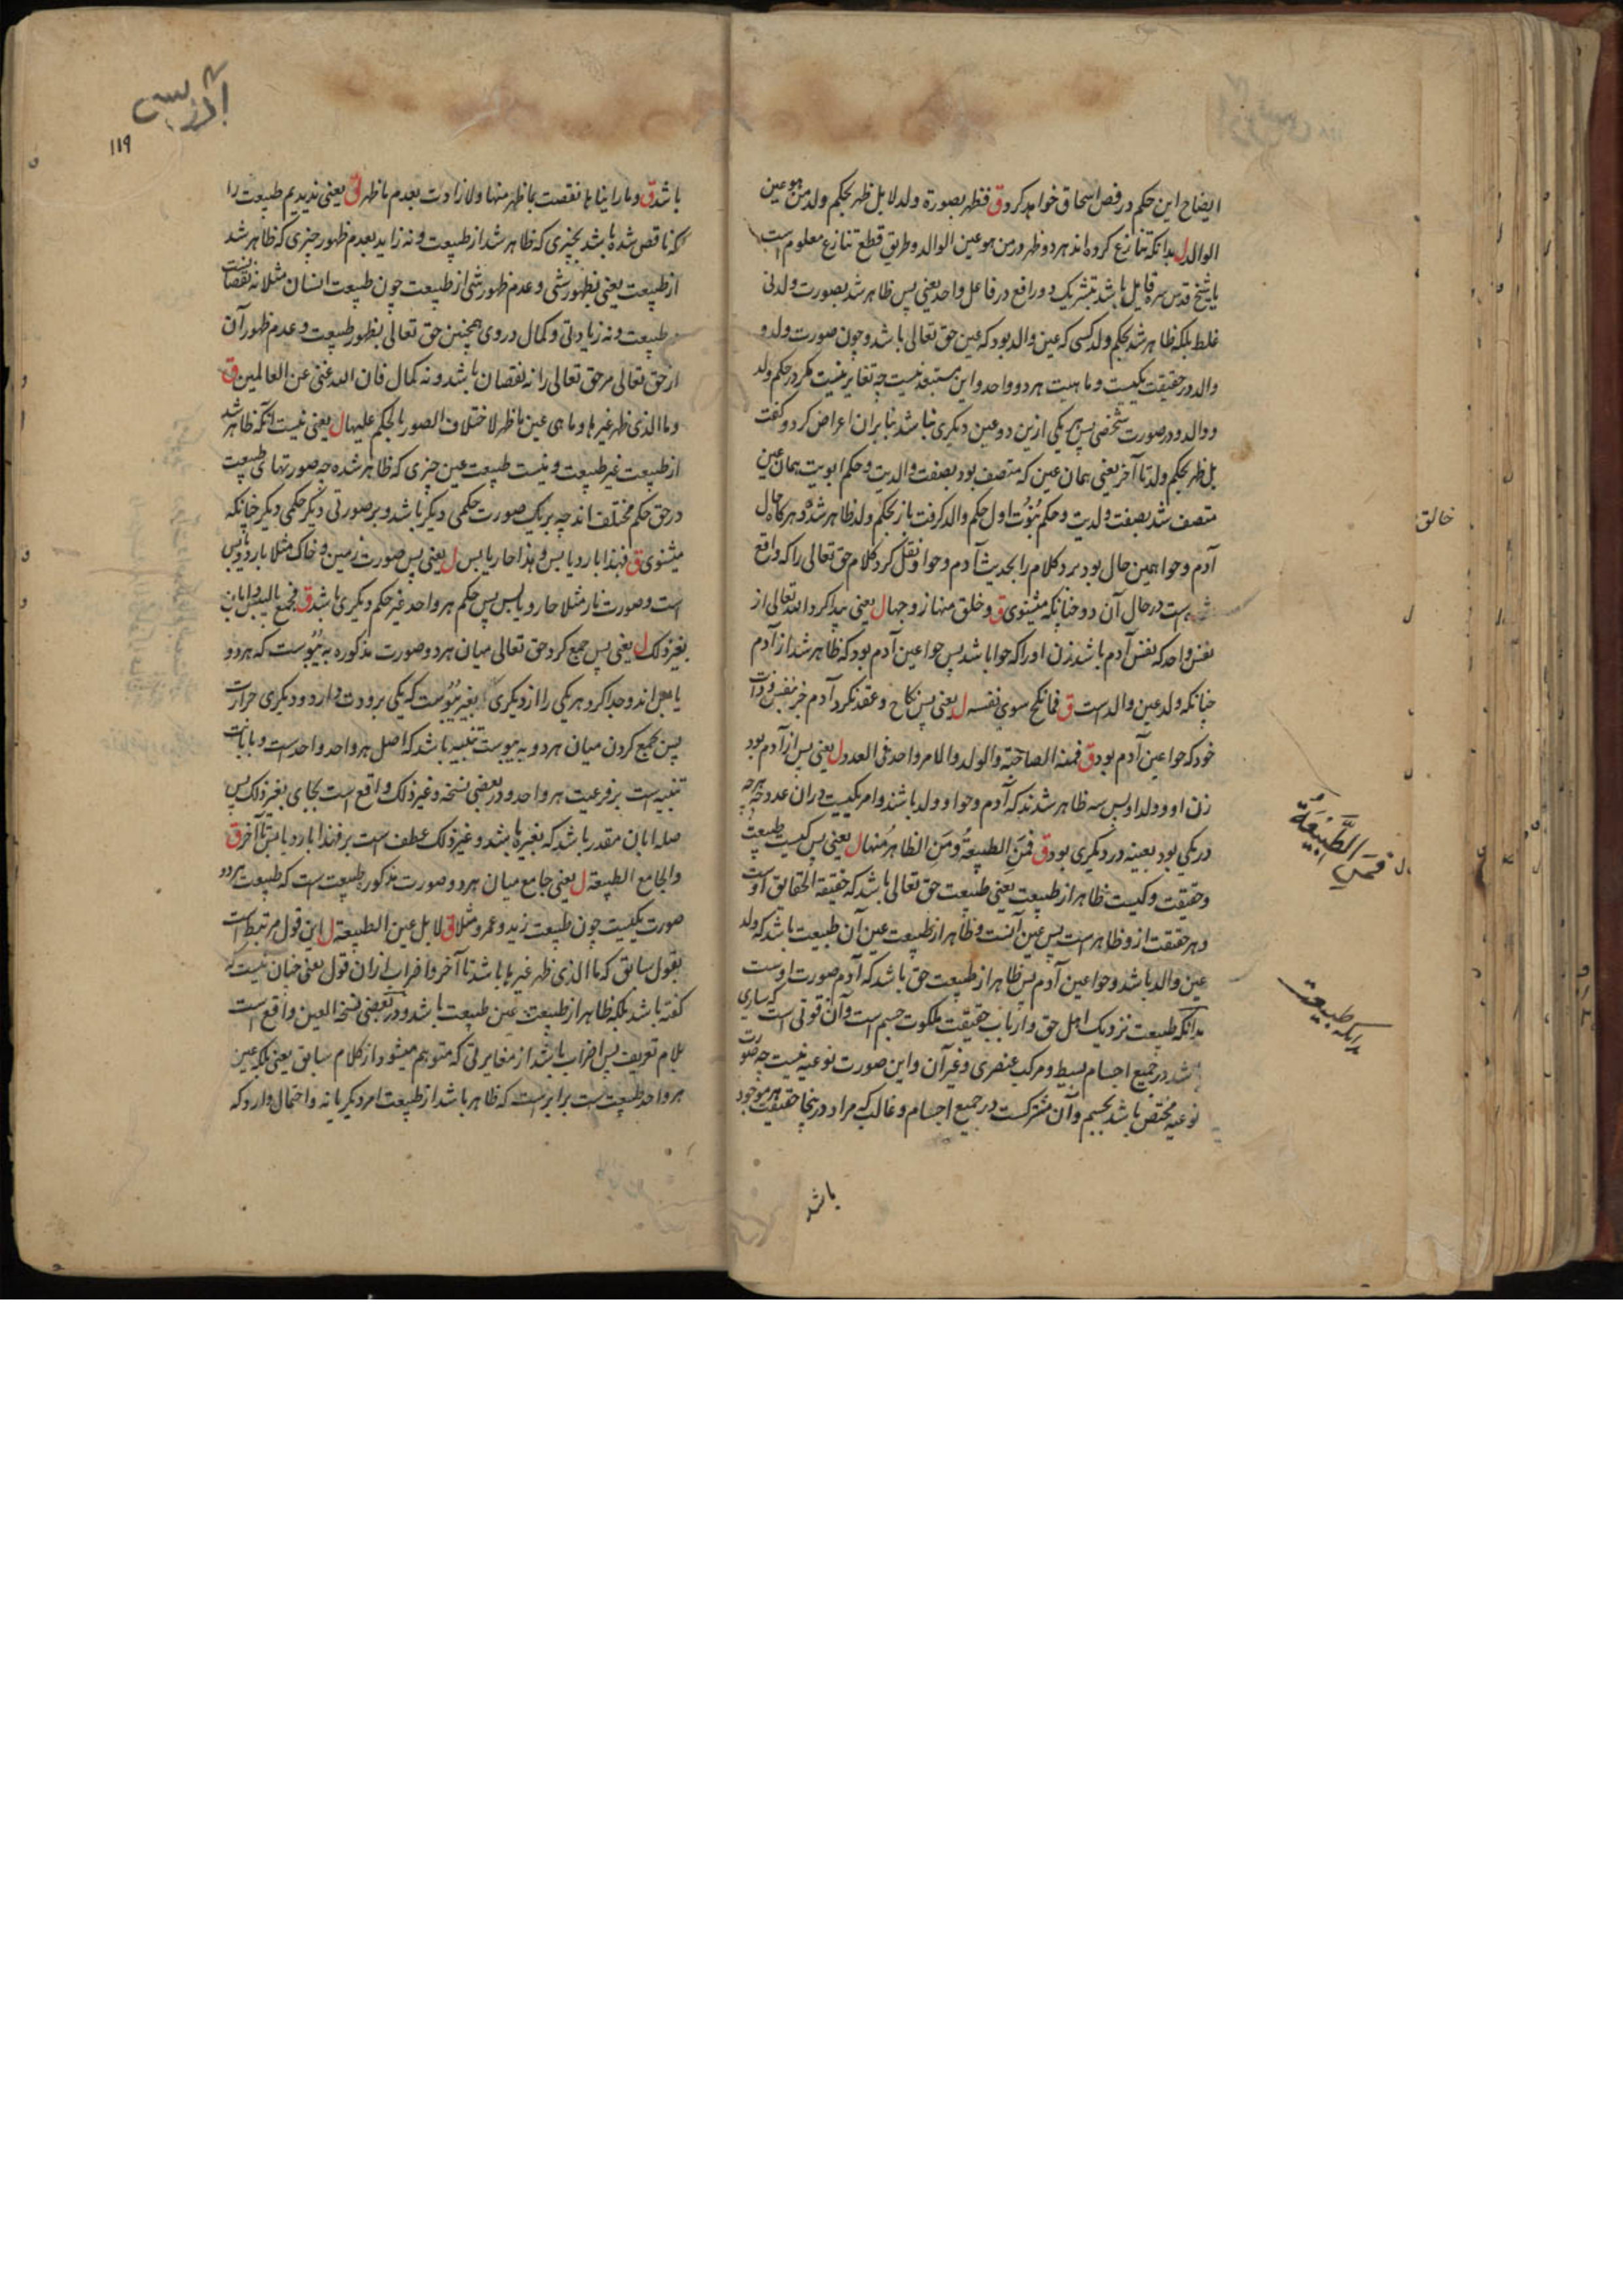 ایضاح این حکم در فص اسحاق خواهد کرد ق فظهر بصورة ولد لا بل ظهر بحکم ولد من هو عین
الوالد ل بدانکه تنازع کرده اند هر دو ظهر در من هو عین الوالد و طریق قطع تنازع معلوم است
یا شیخ قدس سره قایل باشد بتشریک دو رافع در فاعل واحد یعنی پس ظاهر شد بصورت ولد نی
غلط بلکه ظاهر شد بحکم ولد کسی که عین والد بود که عین حق تعالی باشد و چون صورت ولد و
والد در حقیقت یکیست و ماهیت هر دو واحد و این مستبعد نیست چه تغایر نیست مگر در حکم ولد
و والد و در صورت شخصی پس هر یکی ازین دو عین دیگری نباشد بنابران اعراض کرد و گفت
بل ظهر بحکم ولد تا آخر یعنی همان عین که متصف بود بصفت والدیت و حکم ابویت همان عین
متصف شد بصفت ولدیت و حکم بنوت اول حکم والد گرفت باز بحکم ولد ظاهر شده و هرگاه حال
آدم و حوا همین حال بود برد کلام را بحدیث آدم و حوا و نقل کرد کلام حق تعالی را که واقع
است در حال آن دو چنانکه میشنوی ق و خلق منها زوجها ل یعنی پیدا کرد الله تعالی از
نفس واحد که نفس آدم باشد زن او را که حوا باشد پس حوا عین آدم بود که ظاهر شد از آدم
چنانکه ولد عین والد است ق فما نکح سوی نفسه ل یعنی پس نکاح و عقد نکرد آدم جز بنفس و ذات
خود که حوا عین آدم بود ق فمنه الصاحبة والولد والامر واحد فی العدد ل یعنی پس از آدم بود
زن او و ولد او پس سه ظاهر شدند که آدم و حوا و ولد باشند و امر یکیست در ان عدد چه هر چه
در یکی بود بعینه در دیگری بود ق فمن الطبیعة ومن الظاهر منها ل یعنی پس کیست طبیعت
و حقیقت و کیست ظاهر از طبیعت یعنی طبیعت حق تعالی باشد که حقیقة الحقایق اوست
و هر حقیقت ازو ظاهر است پس عین آنست و ظاهر از طبیعت عین آن طبیعت باشد که ولد
عین والد باشد و حوا عین آدم پس ظاهر از طبیعت حق باشد که آدم صورت اوست
بدانکه طبیعت نزدیک اهل حق و ارباب حقیقت ملکوت جسم است و آن قوتی است که ساری
باشد در جمیع اجسام بسیط و مرکب عنصری و غیر آن و این صورت نوعیه نیست چه صورت
نوعیه مختص باشد بجسم و آن مشترکست در جمیع اجسام و غالب که مراد درینجا حقیقت هر موجود
باشد
خالق
فمن الطبیعة
بدانکه طبیعت
ادریس
۱۱۹
باشد ق وما رأیناها نقصت بما ظهر منها ولا زادت بعدم ما ظهر ق یعنی ندیدیم طبیعت را
که ناقص شده باشد بچیزی که ظاهر شد از طبیعت و نه زاید بعدم ظهور چیزی که ظاهر شد
از طبیعت یعنی بظهور شئی و عدم ظهور شئی از طبیعت چون طبیعت انسان مثلا نه نقصانست
در طبیعت و نه زیادتی و کمال در وی همچنین حق تعالی بظهور طبیعت و عدم ظهور آن
از حق تعالی مر حق تعالی را نه نقصان باشد و نه کمال فان الله غنی عن العالمین ق
وما الذی ظهر غیرها وما هی عین ما ظهر لاختلاف الصور بالحکم علیها ل یعنی نیست آنکه ظاهر شد
از طبیعت غیر طبیعت و نیست طبیعت عین چیزی که ظاهر شده چه صورتهای طبیعت
در حق حکم مختلف اند چه بر یک صورت حکمی دیگر باشد و بر صورتی دیگر حکمی دیگر چنانکه
میشنوی ق فهذا بارد یابس وهذا حار یابس ل یعنی پس صورت زمین و خاک مثلا بارد و یابس
است و صورت نار مثلا حار و یابس پس حکم هر واحد غیر حکم دیگری باشد ق فجمع بالیبس وابان
بغیر ذلک ل یعنی پس جمع کرد حق تعالی میان هر دو صورت مذکوره به یبوست که هر دو
یابس اند و جدا کرد هر یکی را از دیگری بغیر یبوست که یکی برودت دارد و دیگری حرارت
پس بجمع کردن میان هر دو به یبوست تنبیه باشد که اصل هر واحد واحد است و بابانت
تنبیه است بر فرعیت هر واحد و در بعضی نسخه و غیر ذلک واقع است بجای بغیر ذلک پس
صله ابان مقدر باشد که بغیره باشد و غیر ذلک عطف است بر فهذا بارد یابس تا آخر ق
والجامع الطبیعة ل یعنی جامع میان هر دو صورت مذکور طبیعت است که طبیعت هر دو
صورت یکیست چون طبیعت زید و عمرو مثلا ق لا بل عین الطبیعة ل این قول مرتبط است
بقول سابق که ما الذی ظهر غیرها باشد تا آخر و اضراب از ان قول یعنی چنان نیست که
گفته باشد بلکه ظاهر از طبیعت عین طبیعت باشد و در بعضی نسخ العین واقع است
بلام تعریف پس اضراب باشد از مغایرتی که متوهم میشود از کلام سابق یعنی بلکه عین
هر واحد طبیعت است برابرست که ظاهر باشد از طبیعت امر دیگر یا نه و احتمال دارد که